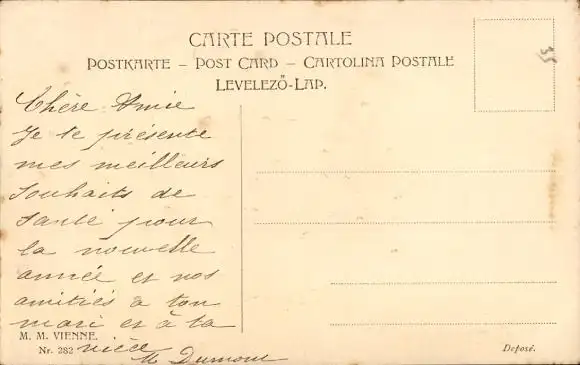 CARTE POSTALE
POSTKARTE – POST CARD – CARTOLINA POSTALE
LEVELEZŐ-LAP.
35
Chère Amie
Je te présente
mes meilleurs
souhaits de
santé pour
la nouvelle
année et nos
amitiés à ton
mari et à ta
nièce
M Dumont
M. M. VIENNE.
Nr. 282
Deposé.